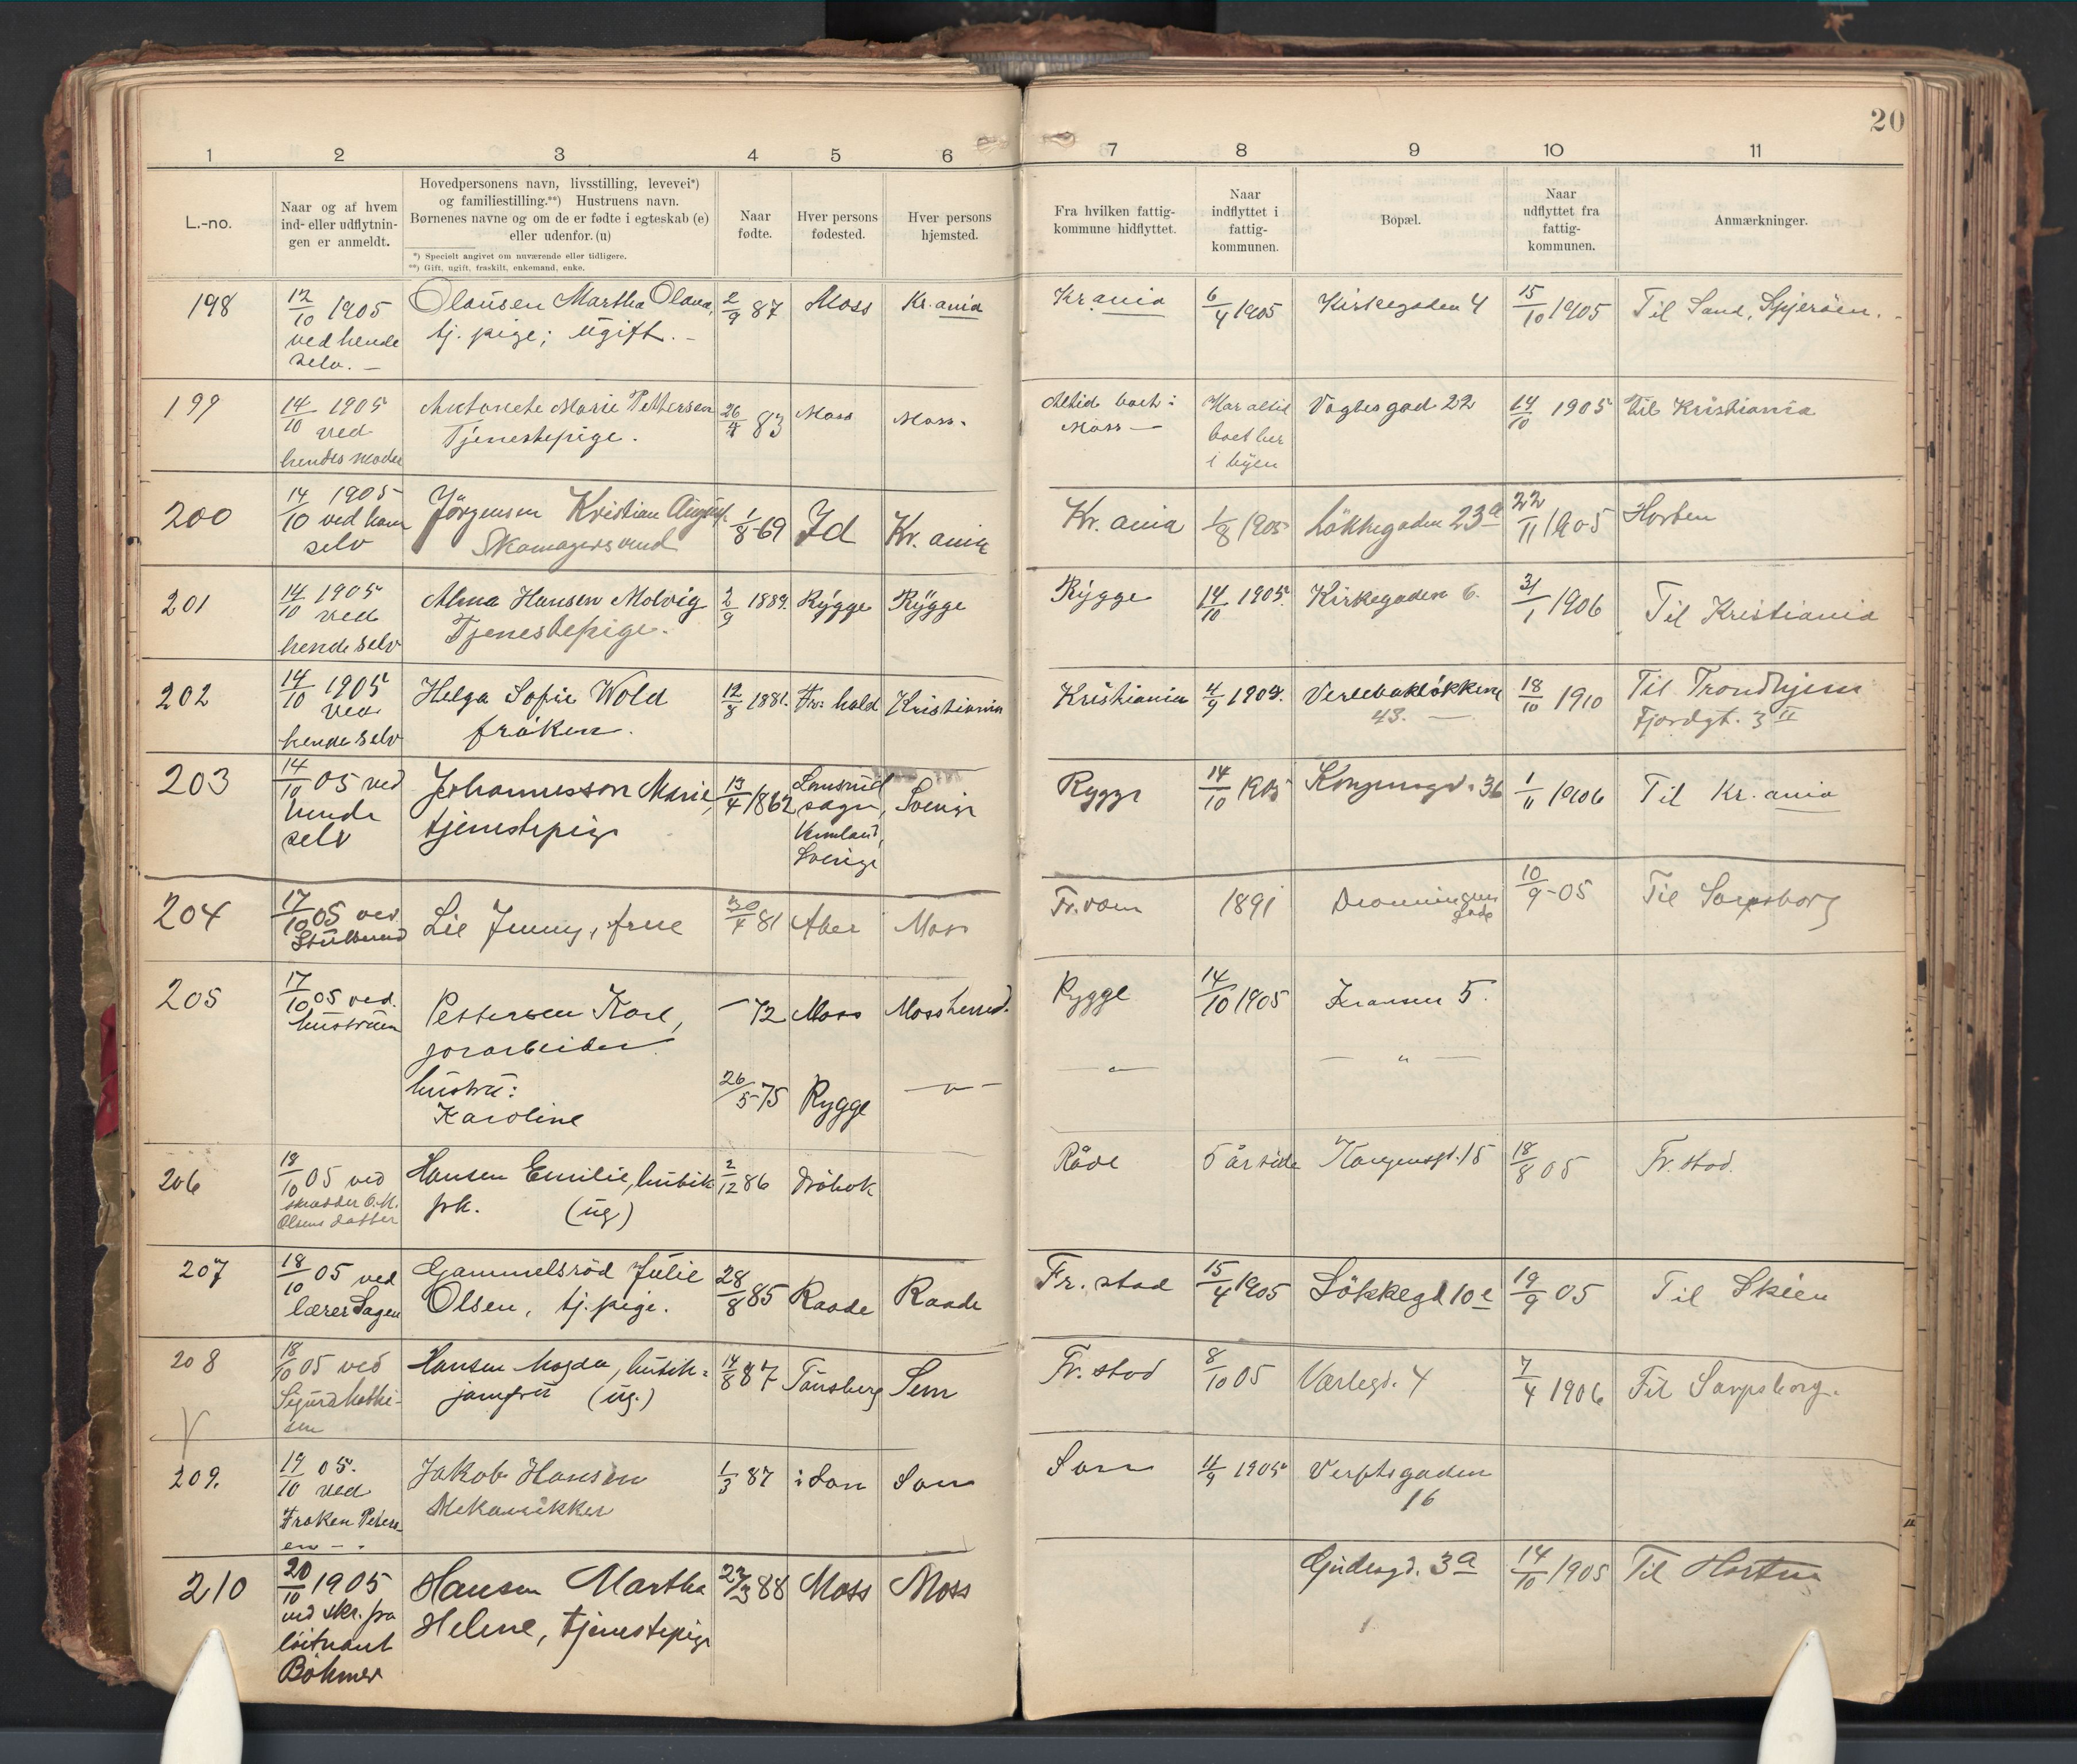 20
1 2 3 4 5 6 7 8 9 10 11
L.-no.
Naar og af hvem
ind- eller udflytnin-
gen er anmeldt.
Hovedpersonens navn, livsstilling, levevei*)
og familiestilling.**) Hustruens navn.
Børnenes navne og om de er fødte i egteskab (e)
eller udenfor. (u)
*) Specielt angivet om nuværende eller tidligere.
**) Gift, ugift, fraskilt, enkemand, enke.
Naar
fødte.
Hver persons
fødested.
Hver persons
hjemsted.
Fra hvilken fattig-
kommune hidflyttet.
Naar
indflyttet i
fattig-
kommunen.
Bopæl.
Naar
udflyttet fra
fattig-
kommunen.
Anmærkninger.
198
12/10 1905
ved hende
selv. —
Olausen Martha Olava,
tj. pige; ugift. –
2/9 87
Moss
Kr.ania
Kr.ania
6/4 1905
Kirkegaden 4
15/10 1905
Til Sand, Spjerøen.
199
14/10 1905
ved
hendes moder
Antonete Marie Pettersen
Tjenestepige.
26/4 83
Moss
Moss.
Altid boet i
Moss —
Har altid
boet her
i byen
Vogtesgad 22
14/10 1905
til Kristiania
200
14/10 1905
ved ham
selv
Jörgensen Kristian August
Skomagersvend
1/8 69
Id
Kr. ania
Kr. ania
1/8 1905
Løkkegaden 23a
22/11 1905
Horten
201
14/10 1905
ved
hende selv
Alma Hansen Molvig
Tjenestepige.
2/9 1889.
Rygge
Rygge
Rygge
14/10 1905.
Kirkegaden 6.
31/1 1906
Til Kristiania
202
14/10 1905
ved
hende selv
Helga Sofie Wold
frøken.
12/8 1881.
Fr: hald
Kristiania
Kristiania
Verlebakløkken
43. —
18/10 1910
Til Trondhjem
Fjordgt. 3 II
203
14/10 05 ved
hende
selv
Johannesson Marie,
tjenestepige
13/4 1862
sogn,
Vermland,
Sverige
Sverige
Rygge
14/10 1905
Kongensgd. 36
1/11 1906
Til Kr. ania
204
17/10 05 ved
Lie Jenny, frue
30/4 81
Aker
Moss
Fr.vœrn
1891
Dronningens
gade
10/9 - 05
Til Sarpsborg
205
17/10 05 ved.
hustruen
Pettersen Karl,
jorarbeider
hustru:
Karoline
— 72
Moss
Moss herred.
26/5 75
Rygge
— " —
Rygge
14/10 1905
Kransen 5.
— " —
— " —
206
18/10 05 ved
skrædder O. M.
Olsens datter
Hansen Emilie, butik
frk. (ug)
2/12 86
Drøbak
Råde
5 år side
Kongensgd. 15
18/8 05
Fr. stad.
207
18/10 05 ved
lærer Sagen
Gammelsröd Julie
Olsen, tj. pige.
28/8 85
Raade
Raade
Fr. stad
15/4 1905
Løkkegd 10e
19/9 05
Til Skien
208
18/10 05 ved
Sigurd Mathi-
sen
Hansen Magda, butik=
jomfru (ug.)
14/8 87
Tønsberg
Sem
Fr. stad
8/10 05
Værlegd. 4
7/4 1906
Til Sarpsborg.
209.
19/10 05.
ved
Frøken Peters
en —
Jakob Hansen
Mekanikker
1/3 87
i Son
Son
Son
4/9 1905
Verftsgaden
16
210
20/10 1905
ved skr. fra
löitnant
Böhmer
Hansen Martha
Helene, tjenestepige
88
Moss
Moss
Gudesgd. 3a
14/10 1905
Til Horten